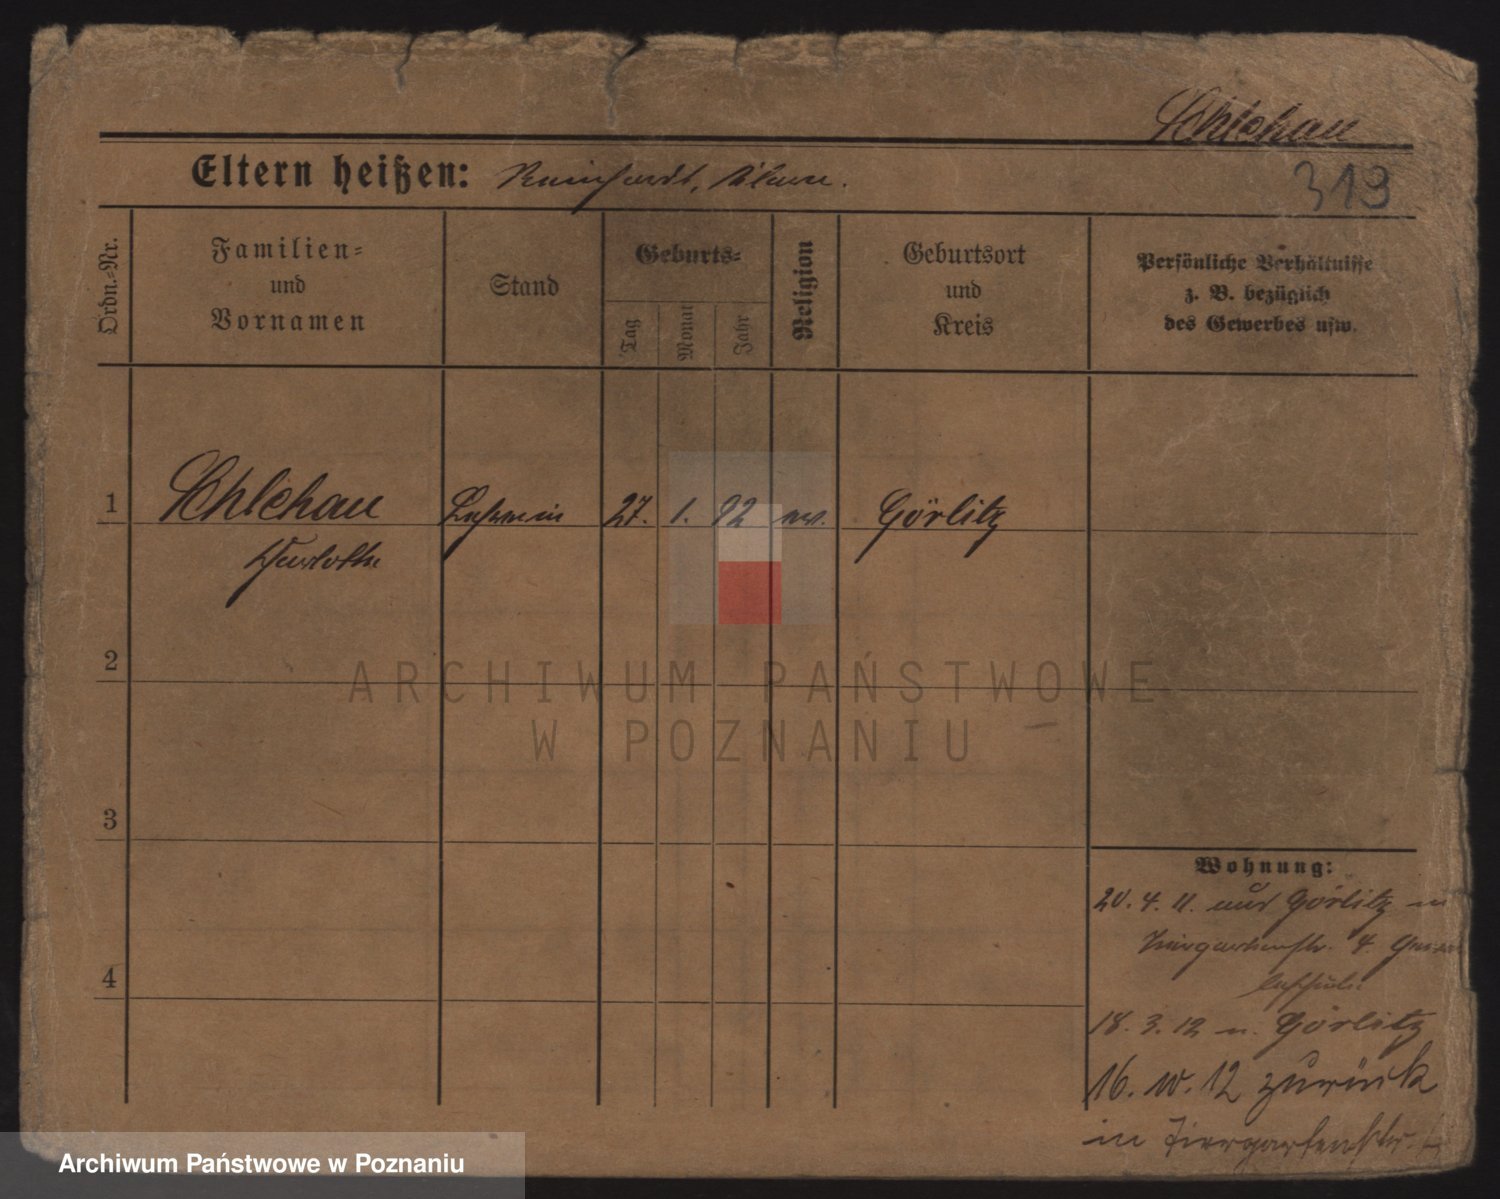 Schlehau
Eltern heißen: Reinhardt,
319
Ordn.=Nr.
Familien=
und
Vornamen
Stand
Geburts=
Tag
Monat
Jahr
Religion
Geburtsort
und
Kreis
Persönliche Verhältnisse
z. B. bezüglich
des Gewerbes usw.
1 Schlehau 27. 1. 92 ev. Görlitz
2
ARCHIWUM PAŃSTWOWE
W POZNANIU
3
Wohnung:
20. 4. 11. aus Görlitz in
Tiergartenstr. 4.
4
18. 3. 12 n. Görlitz
16. 10. 12 zurück
in Tiergartenstr.
Archiwum Państwowe w Poznaniu